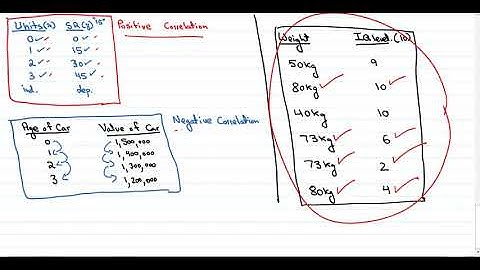 Units(x) SR(y) "15"
Positive Correlation
0 0
1 15
2 30
3 45
ind. dep.
Age of Car Value of Car
Negative Correlation
0 1,500,000
1 1,400,000
2 1,300,000
3 1,200,000
Weight IQ level.(10)
50kg 9
80kg 10
40kg 10
73kg 6
73kg 2
80kg 4